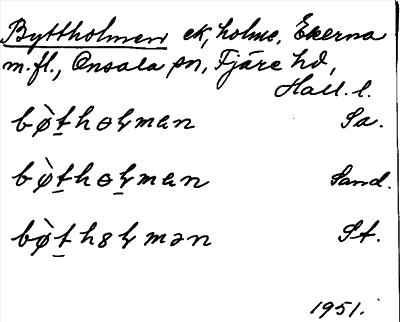 Byttholmen ek, holme, Ekerna
m.fl., Onsala sn, Fjäre hd,
Hall. l.
bø̀t̠hɵɫmɐn Sa.
bø̀t̠hɵɫ̠mɐn Sand.
bø̀t̠h8ɫmən St.
1951.